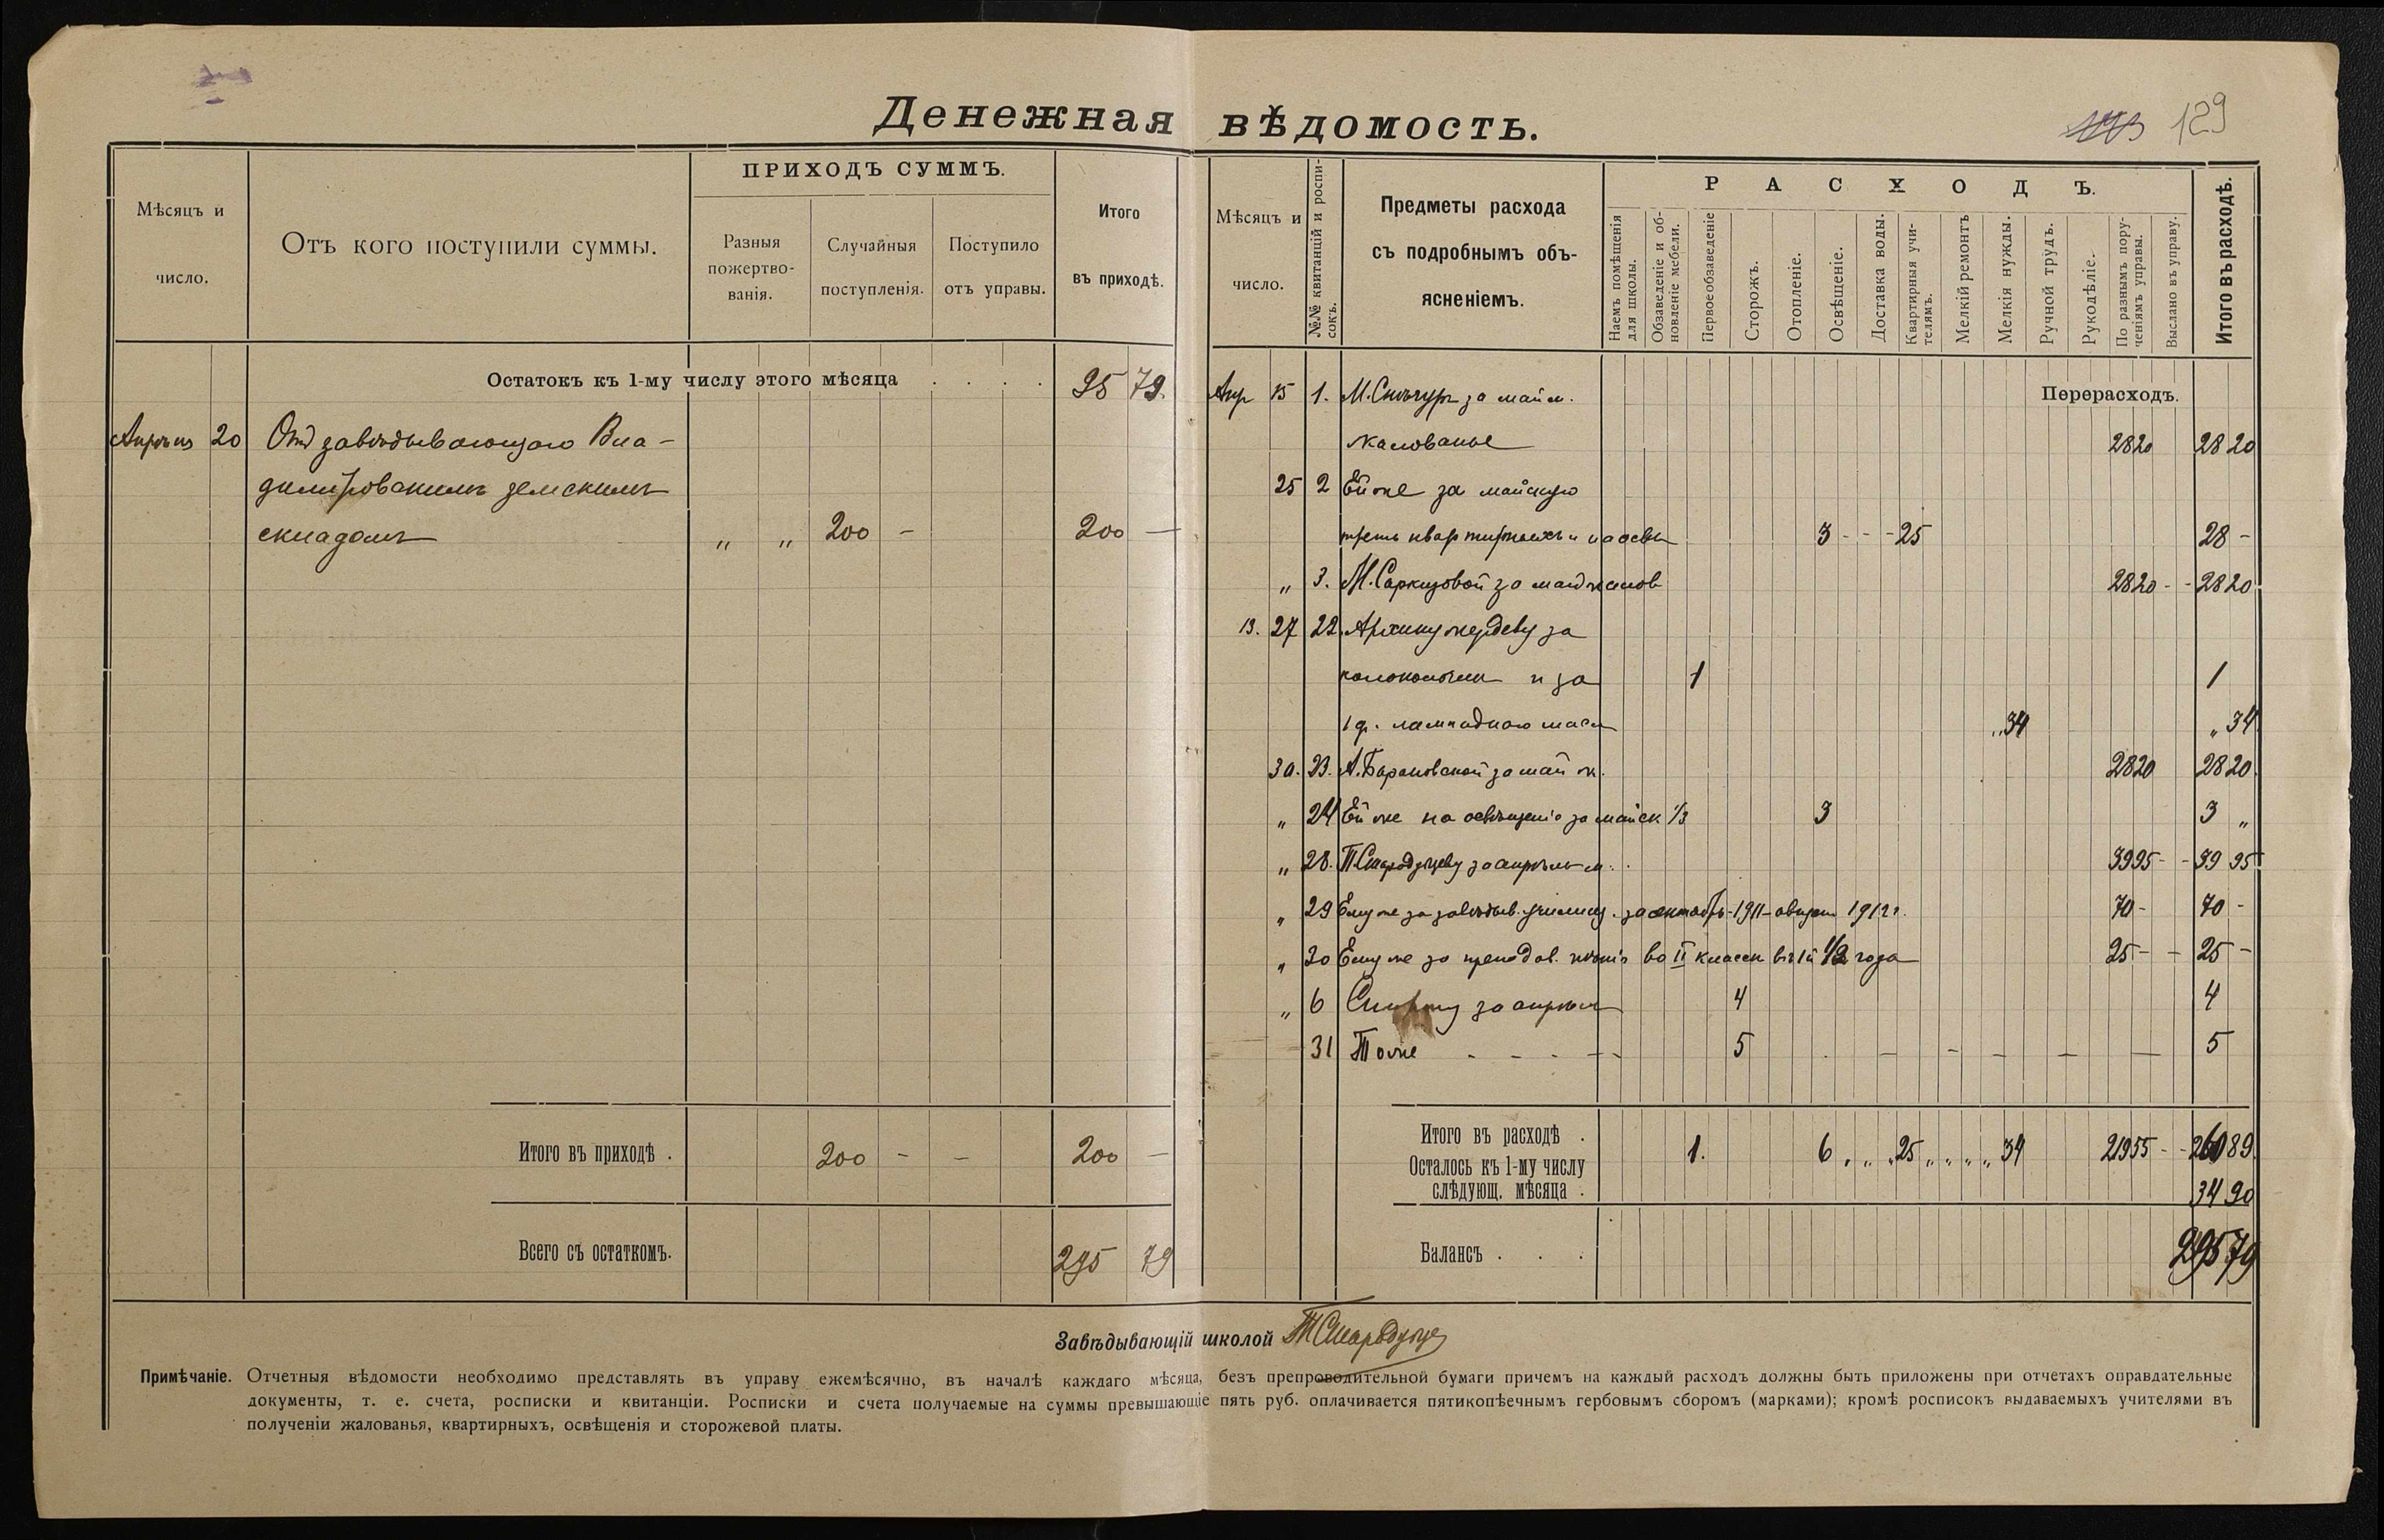 Денежная вѣдомость.
129
Мѣсяцъ и число.
Отъ кого поступили суммы.
ПРИХОДЪ СУММЪ.
Разныя пожертво-
ванія.
Случайныя поступленія.
Поступило отъ управы.
Итого въ приходѣ.
Остатокъ къ 1-му числу этого мѣсяца . . . . 95 79.
20 Отъ завѣдывающаго Вла-
земскимъ
складомъ „ „ 200 - 200 —
Итого въ приходѣ . 200 - - 200 —
Всего съ остаткомъ. 295 79
Мѣсяцъ и число.
№№ квитанцій и роспи-
сокъ.
Предметы расхода
съ подробнымъ объ-
ясненіемъ.
РАСХОДЪ.
Наемъ помѣщенія
для школы.
Обзаведеніе и об-
новленіе мебели.
Первоеобзаведеніе
Сторожъ.
Отопленіе.
Освѣщеніе.
Доставка воды.
Квартирныя учи-
телямъ.
Мелкій ремонтъ
Мелкія нужды.
Ручной трудъ.
Рукодѣліе.
По разнымъ пору-
ченіямъ управы.
Выслано въ управу.
Итого въ расходѣ.
Перерасходъ.
Апр 15 1. М. за май м.
жалованье 2820 28 20
25 2 Ей же за майскую
треть квартирныхъ и на освѣ 3 - - - 25 28 -
„ 3. М. Саркизовой за май жалов 2820 - - 28 20
27 22. за
и за 1 1
1 ф. лампаднаго масл „ 34 „ 34
30. 23. А. Барановской за май ж. 2820 28 20.
„ 24 Ей же на освѣщеніе за майск 1/3 3 3 „
„ 28. за апрѣль м. 3995 - - 39 95
„ 29 Ему же за завѣдыв. училищ. за октябрь-1911-августъ 1912 г. 70 - 70 -
„ 30 Ему же за преподав. пѣнія во II классѣ въ 1й 1/2 года 25 - - 25 -
„ 6 за апрѣль 4 4
31 То же - - - - 5 5
Итого въ расходѣ . 1. 6 „ „ „ 25 „ „ „ „ 34 21955 - - 260 89.
Осталось къ 1-му числу
слѣдующ. мѣсяца . 34 90
Балансъ . . . 295 79
Завѣдывающій школой
Примѣчаніе. Отчетныя вѣдомости необходимо представлять въ управу ежемѣсячно, въ началѣ каждаго мѣсяца, безъ препроводительной бумаги причемъ на каждый расходъ должны быть приложены при отчетахъ оправдательные
документы, т. е. счета, росписки и квитанціи. Росписки и счета получаемые на суммы превышающіе пять руб. оплачивается пятикопѣечнымъ гербовымъ сборомъ (марками); кромѣ росписокъ выдаваемыхъ учителями въ
полученіи жалованья, квартирныхъ, освѣщенія и сторожевой платы.